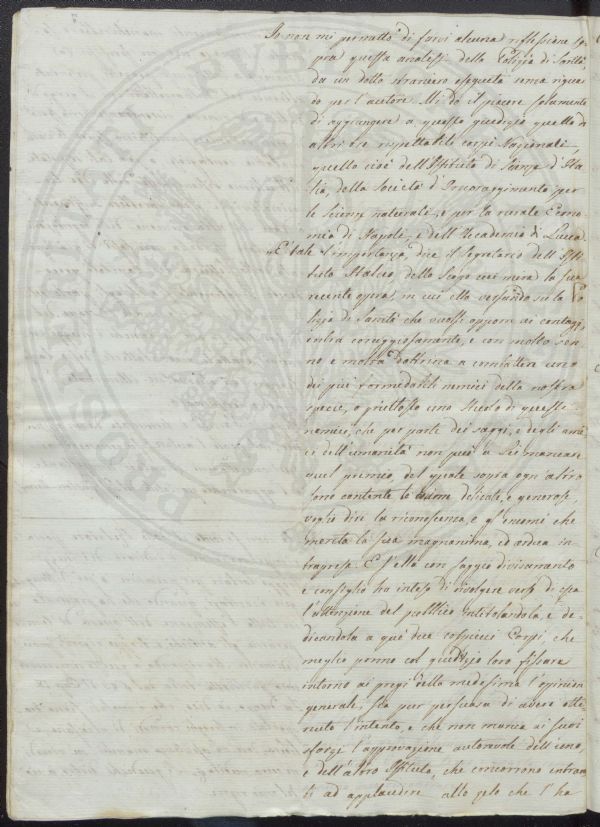 Io non mi permetto di farvi alcuna riflessione so
pra questa analesi della Polizia di Sanità
da un dotto straniero eseguita senza rigua
do per l'autore. Mi do il piacere solamente
di aggiungere a questo giudizio quello d
altri tre rispettabili corpi Nazionali,
quello cioè dell'Istituto di Scienze d'Ita
lia, della Società d'Incoraggimento per
le scienze naturali, e per la rurale Econo
mia di Napoli, e dell'Accademia di Lucca.
"È tale l'importanza, dice il Segretario dell'Isti
tuto Italico dello scopo cui mira la sua
recente opera in cui ella versando su la Po
lizia di Sanità che vuolsi opporre ai contagi,
entra coraggiosamente, e con molto sen
no e molta dottrina a combattere uno
dei più formidabili nemici della nostra
specie, o piuttosto uno stuolo di questi
nemici, che per parte dei saggi, e degli ami
ci dell'umanità non può a Lei mancare
quel premio, del quale sopra ogn'altro
sono contente le anime delicate, e generose,
voglio dire la riconoscenza, e gl'encomi che
merita la sua magnanima, ed ardua in
trapresa. E s'ella con saggio divisamento
e consiglio ha inteso di rivolgere verso di essa
l'attenzione del pubblico intitolandola, e de
dicandola a que' due cospicui Corpi, che
meglio ponno col giudizio loro fissare
intorno ai pregi della medesima l'opinion
generale, sia pur persuasa di avere otte
nuto l'intento, e che non manca ai suoi
sforzi l'approvazione autorevole dell'uno,
e dell'altro Istituto, che concorrono entram
bi ad applaudire allo zelo che l'ha
PROSPERITATI PVB